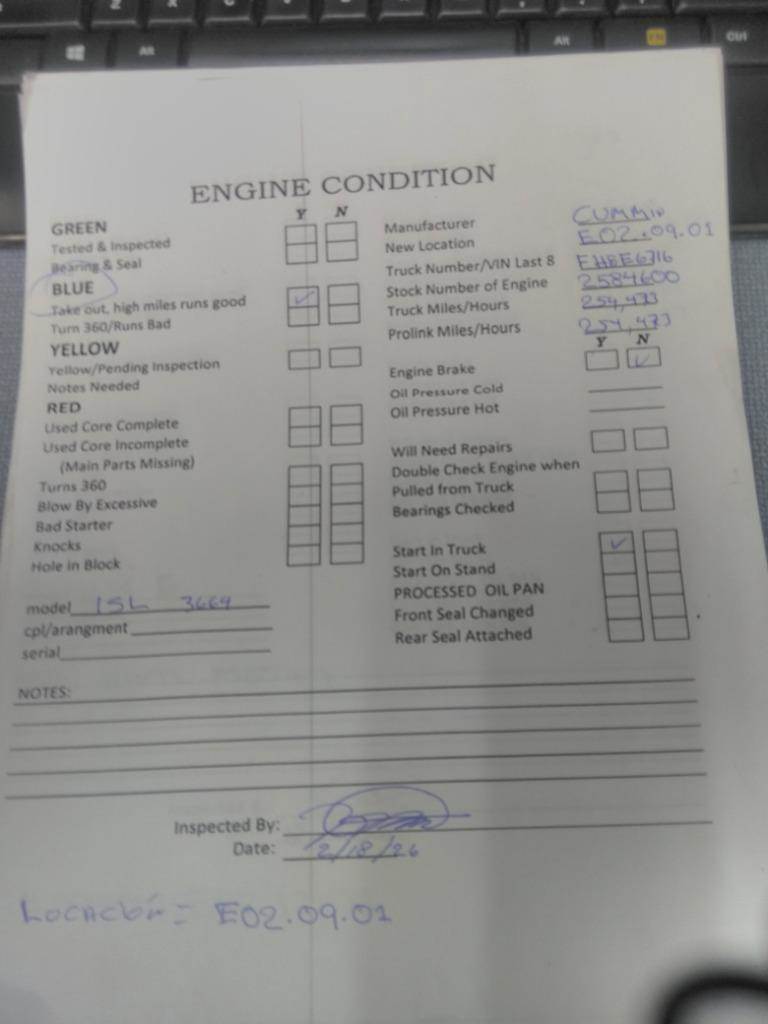 Alt
Alt
Ctrl
ENGINE CONDITION
Y N
GREEN
Tested & Inspected
Bearing & Seal
BLUE
Take out, high miles runs good
Turn 360/Runs Bad
YELLOW
Yellow/Pending Inspection
Notes Needed
RED
Used Core Complete
Used Core Incomplete
(Main Parts Missing)
Turns 360
Blow By Excessive
Bad Starter
Knocks
Hole in Block
model ISL 3664
cpl/arangment
serial
Manufacturer CUMMIN
New Location E02.09.01
Truck Number/VIN Last 8 EHBE6716
Stock Number of Engine 2584600
Truck Miles/Hours 254,473
Prolink Miles/Hours 254,473
Y N
Engine Brake
Oil Pressure Cold
Oil Pressure Hot
Will Need Repairs
Double Check Engine when
Pulled from Truck
Bearings Checked
Start In Truck
Start On Stand
PROCESSED OIL PAN
Front Seal Changed
Rear Seal Attached
NOTES:
Inspected By:
Date: 2/18/26
Locación = E02.09.01